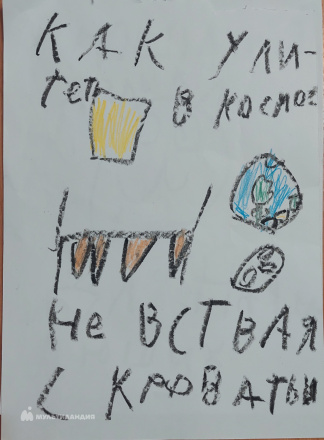 КАК УЛИ-
ТЕТЬ В КОСМОС
НЕ ВСТВАЯ
С КРОВАТЫ
МУЛЬТЛАНДИЯ